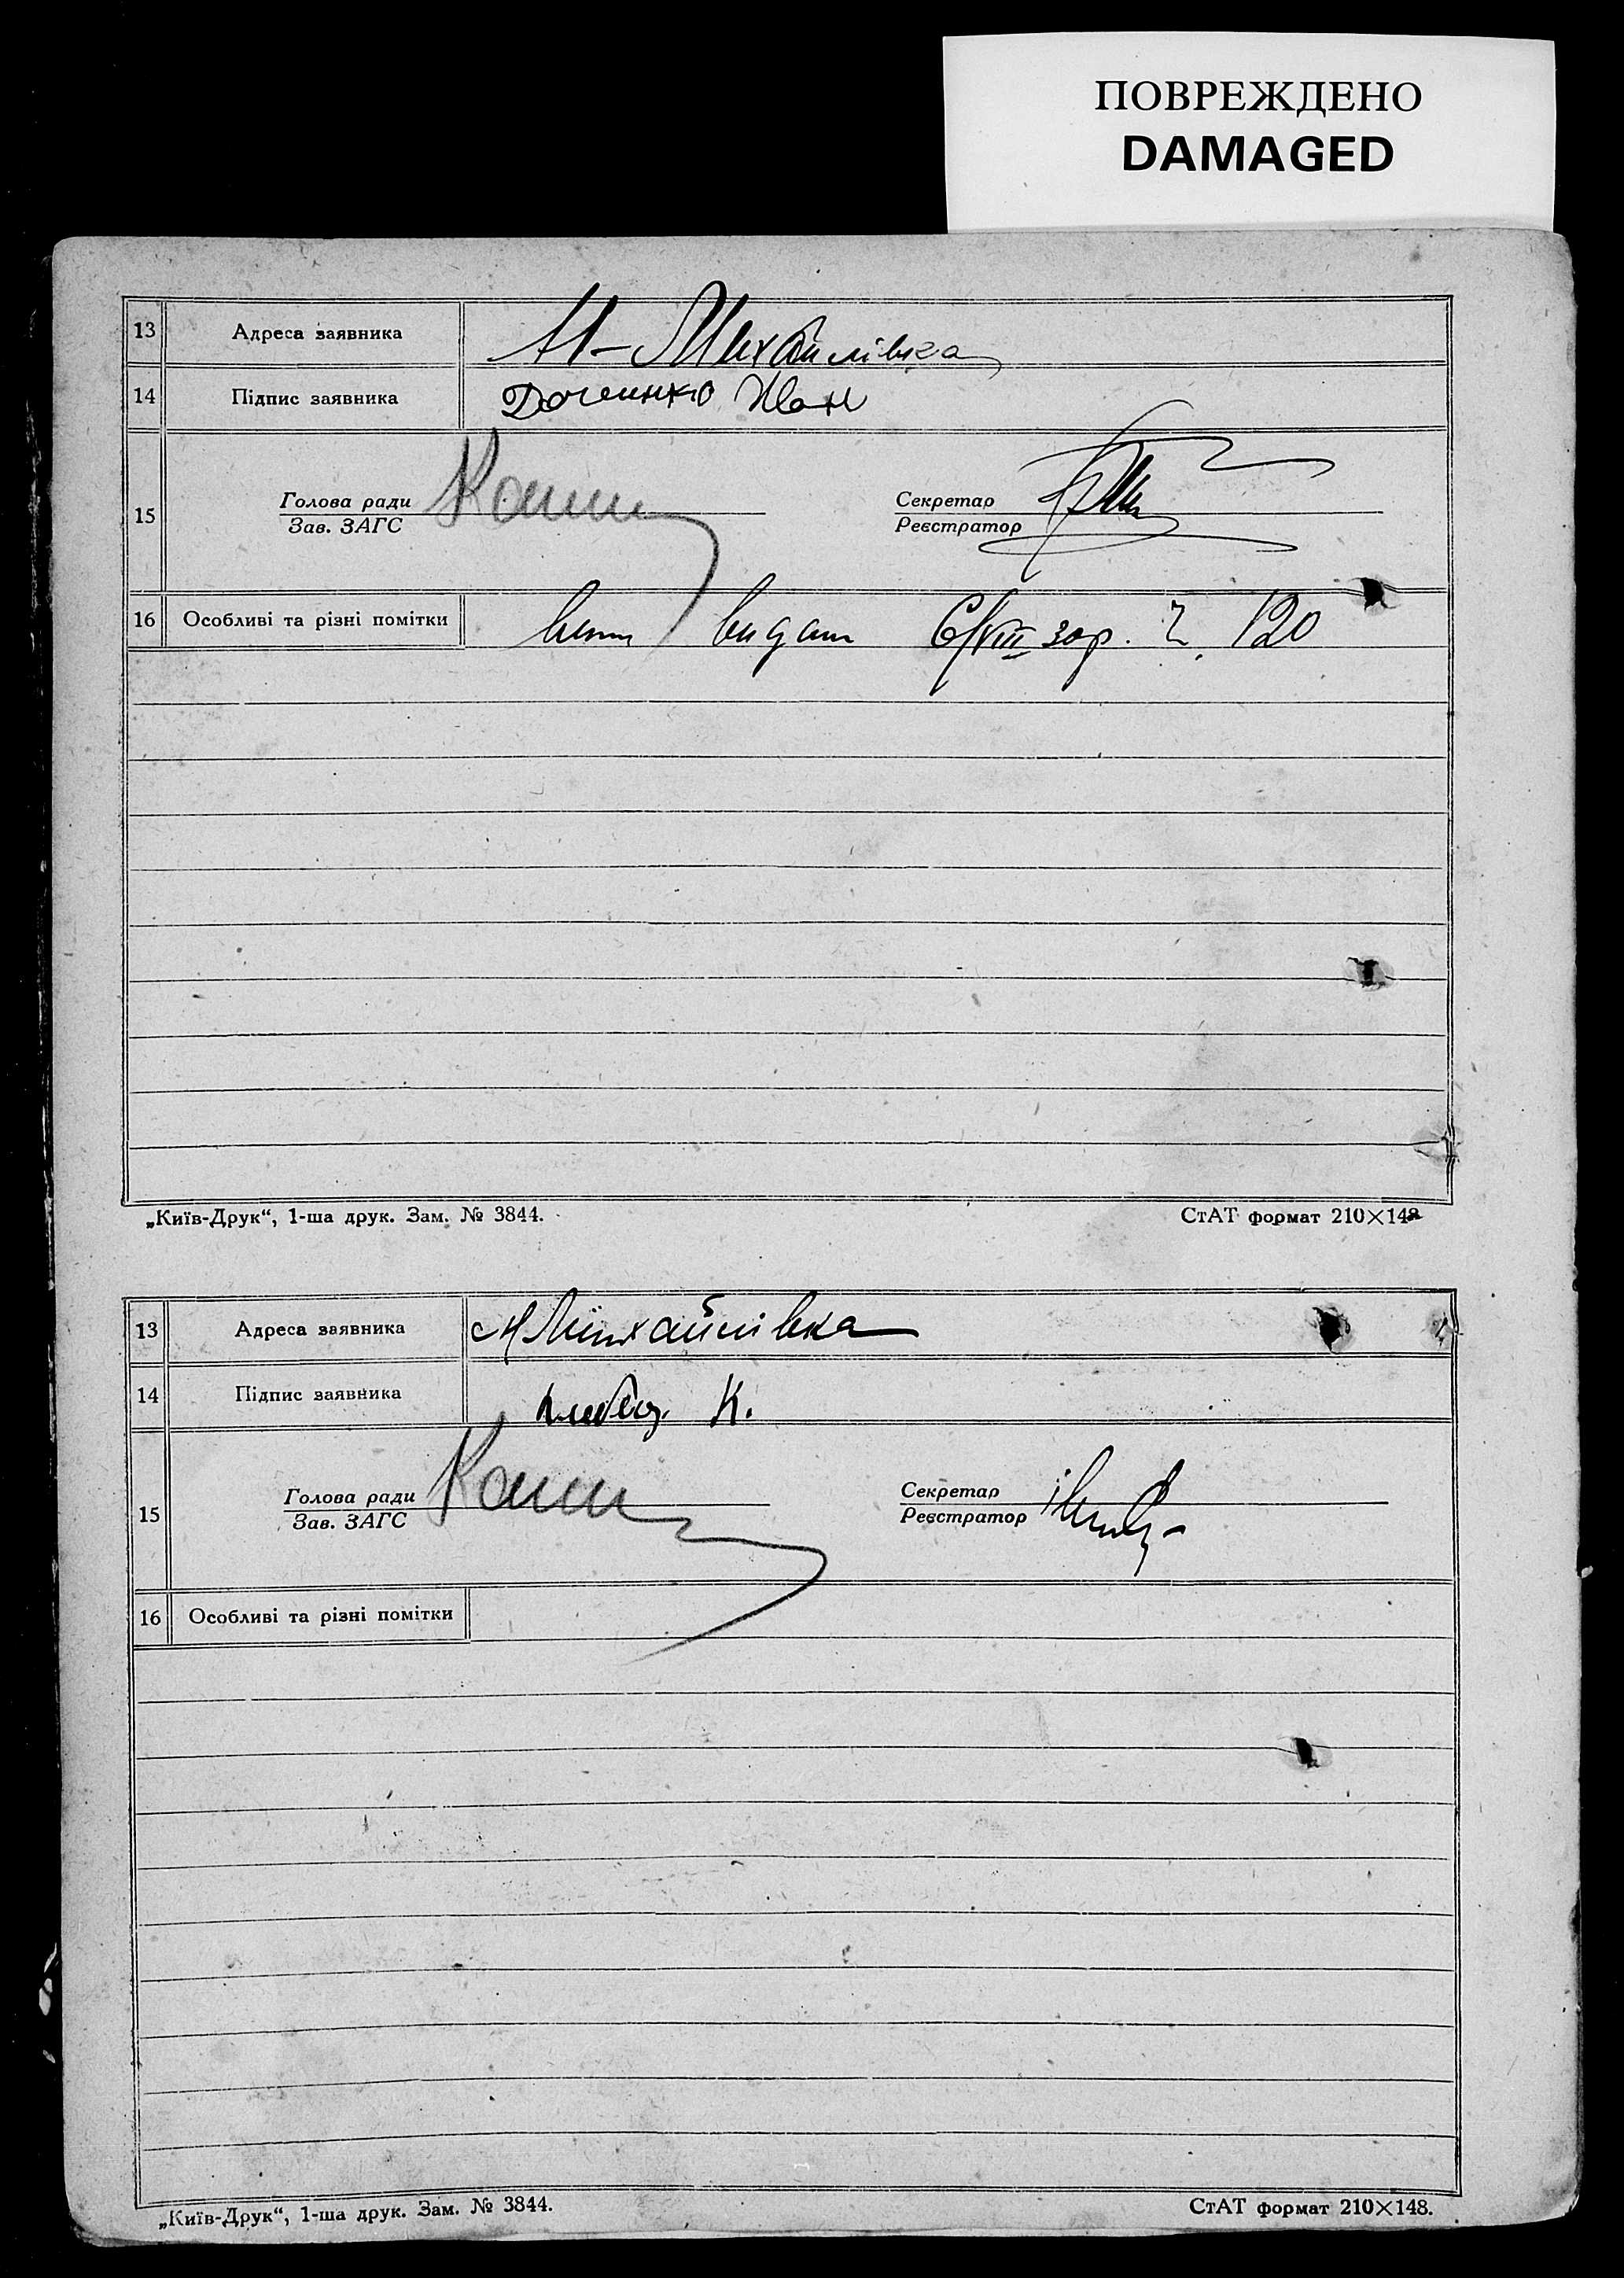 ПОВРЕЖДЕНО
DAMAGED
13 Адреса заявника Н-Михайлівка
14 Підпис заявника Доченко Иван
15 Голова ради Секретар
Зав. ЗАГС Реєстратор
16 Особливі та різні помітки видан 6/VIII зар. 120
„Київ-Друк“, 1-ша друк. Зам. № 3844. СтАТ формат 210×148
13 Адреса заявника Михайлівка
14 Підпис заявника К.
15 Голова ради Секретар
Зав. ЗАГС Реєстратор
16 Особливі та різні помітки
„Київ-Друк“, 1-ша друк. Зам. № 3844. СтАТ формат 210×148.